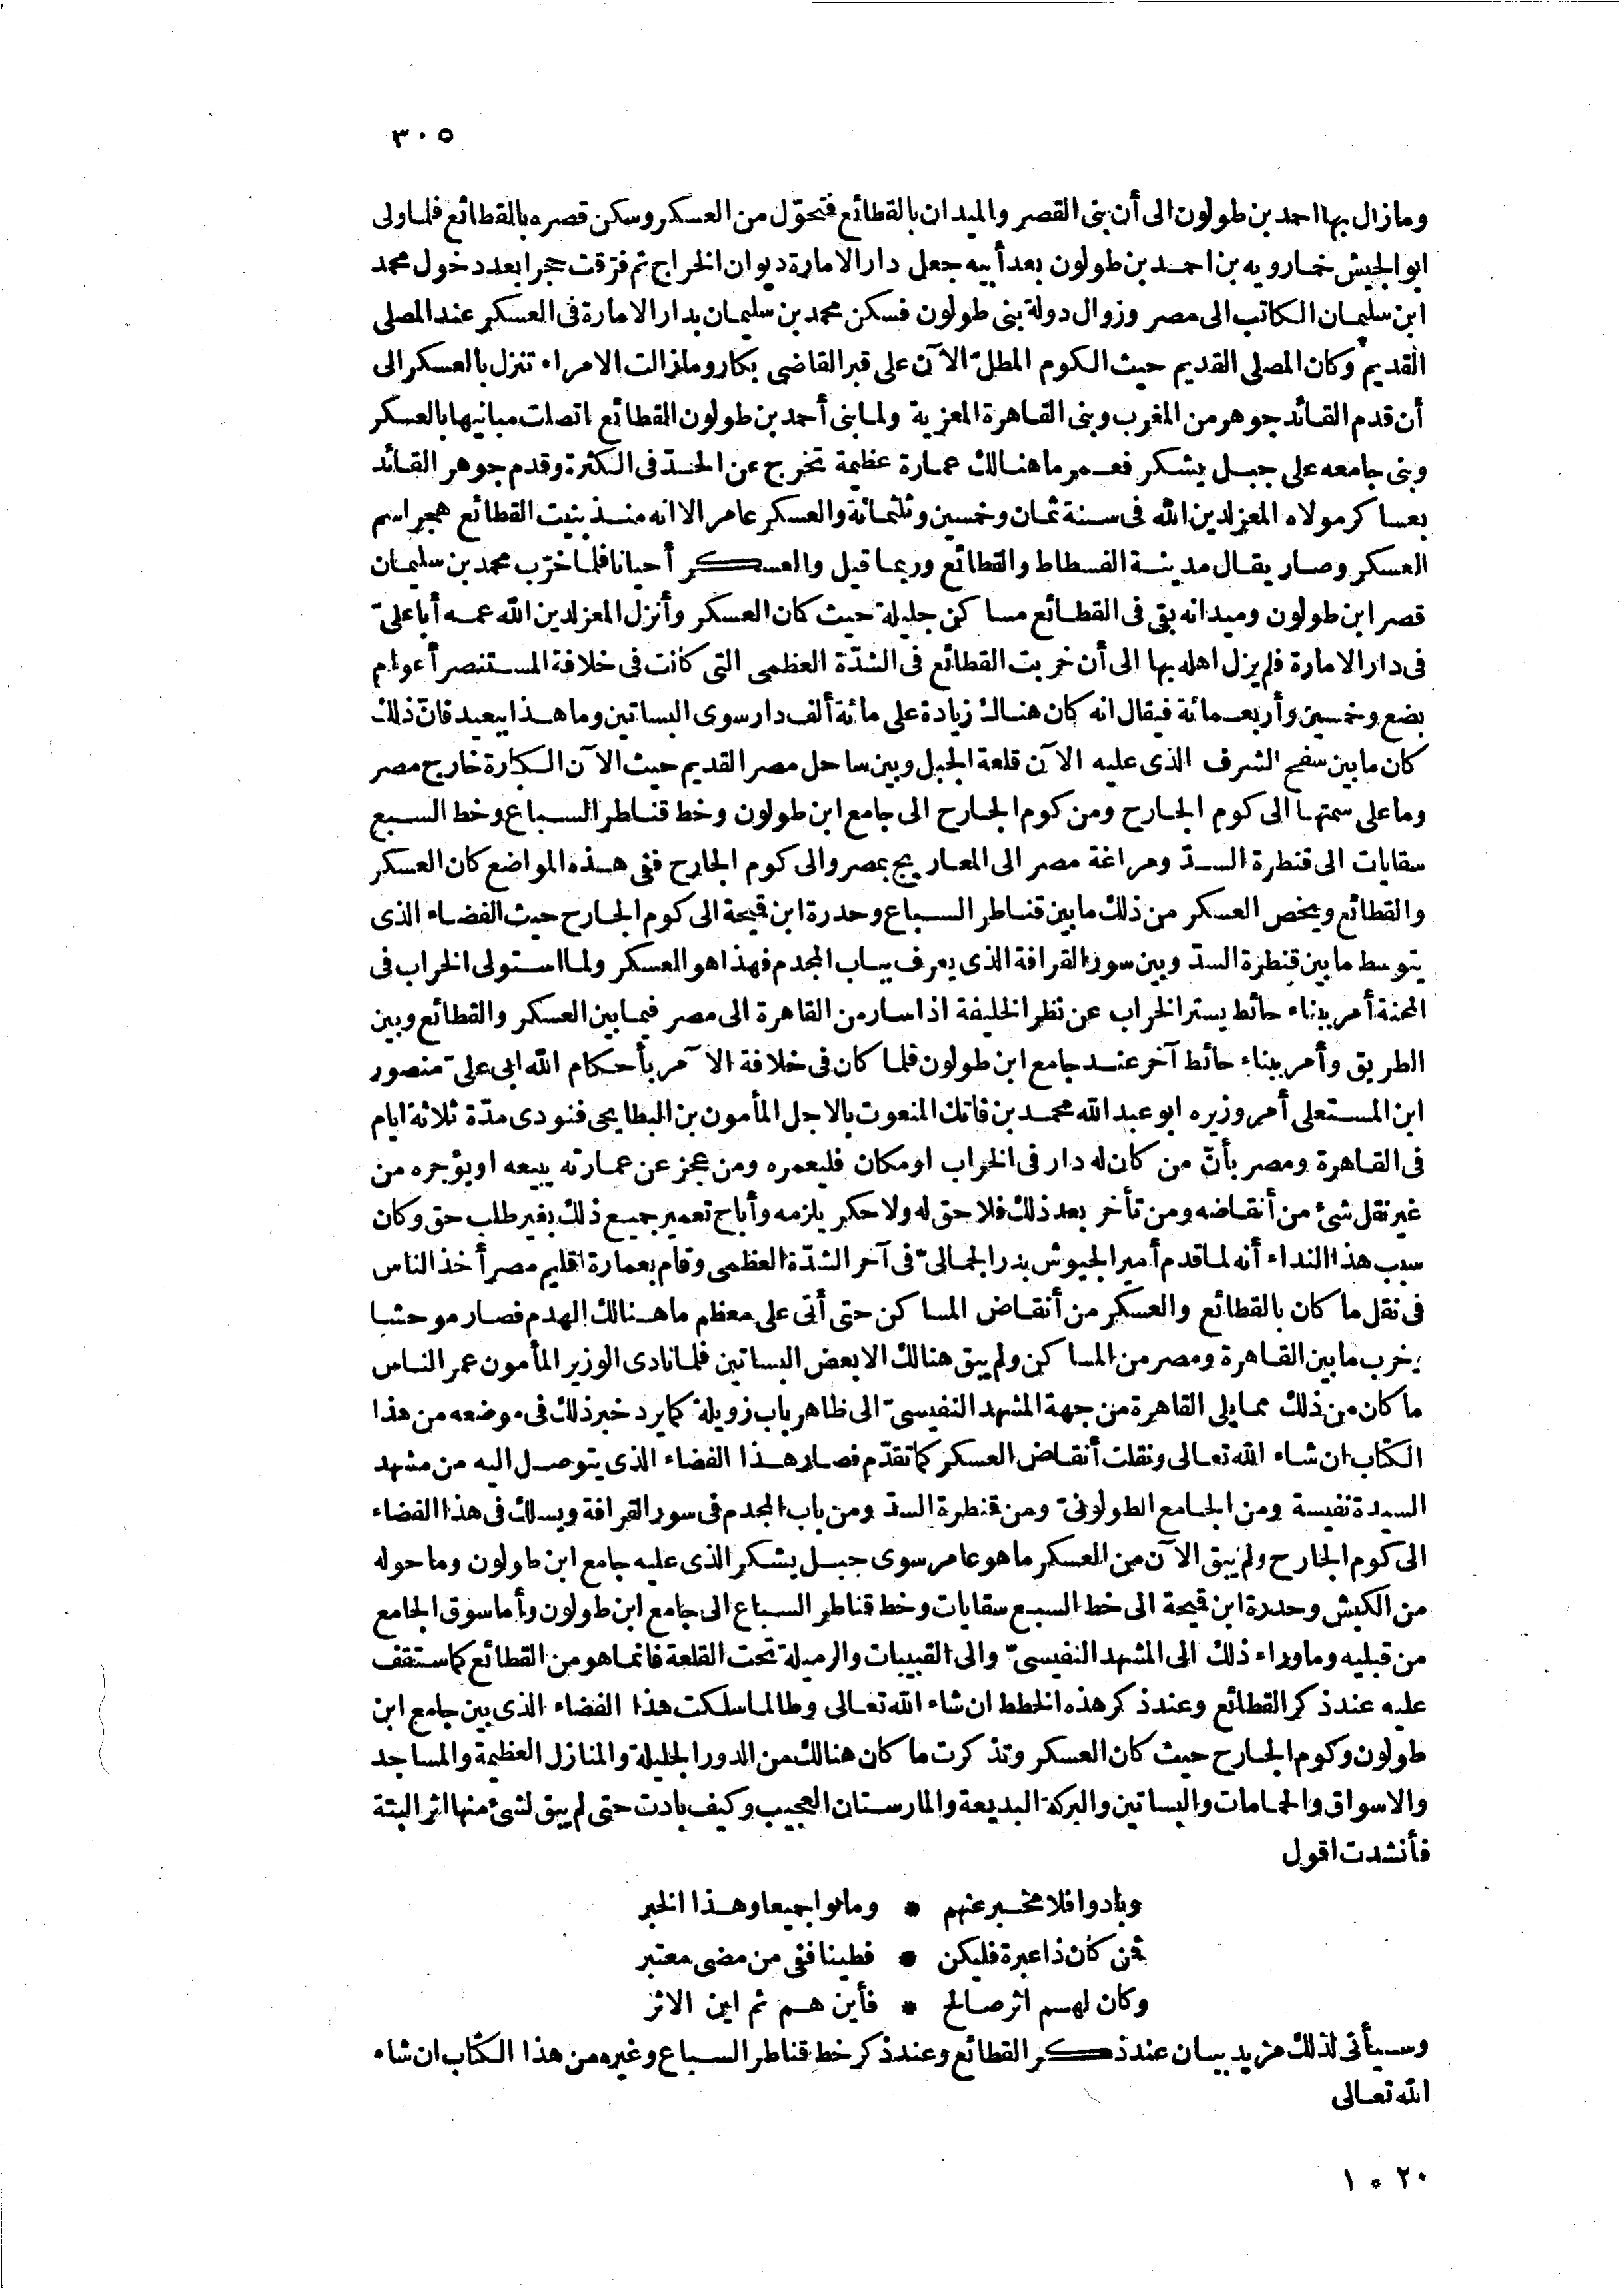 ٣٠٥
ومازال بها احمد بن طولون الى أن بنى القصر والميدان بالقطائع فتحوّل من العسكر وسكن قصره بالقطائع فلما ولى
ابو الجيش خمارويه بن احمد بن طولون بعد أبيه جعل دار الامارة ديوان الخراج ثم فرّقت حجرا بعد دخول محمد
ابن سليمان الكاتب الى مصر وزوال دولة بنى طولون فسكن محمد بن سليمان بدار الامارة فى العسكر عند المصلى
القديم وكان المصلى القديم حيث الكوم المطلّ الآن على قبر القاضى بكار ومازالت الامراء تنزل بالعسكر الى
أن قدم القائد جوهر من المغرب وبنى القاهرة المعزية ولما بنى أحمد بن طولون القطائع اتصلت مبانيها بالعسكر
وبنى جامعه على جبل يشكر فعمر ما هنالك عمارة عظيمة تخرج عن الحدّ فى الكثرة وقدم جوهر القائد
بعساكر مولاه المعز لدين الله فى سنة ثمان وخمسين وثلثمائة والعسكر عامر الا انه منذ بنيت القطائع هجر اسم
العسكر وصار يقال مدينة الفسطاط والقطائع وربما قيل والعسكر أحيانا فلما خرّب محمد بن سليمان
قصر ابن طولون وميدانه بقى فى القطائع مساكن جليلة حيث كان العسكر وأنزل المعز لدين الله عمه أبا علىّ
فى دار الامارة فلم يزل اهله بها الى أن خربت القطائع فى الشدّة العظمى التى كانت فى خلافة المستنصر أعوام
بضع وخمسين وأربعمائة فيقال انه كان هناك زيادة على مائة ألف دار سوى البساتين وما هذا ببعيد فانّ ذلك
كان ما بين سفح الشرف الذى عليه الآن قلعة الجبل وبين ساحل مصر القديم حيث الآن الكبارة خارج مصر
وما على سمتها الى كوم الجارح ومن كوم الجارح الى جامع ابن طولون وخط قناطر السباع وخط السبع
سقايات الى قنطرة السدّ ومراغة مصر الى المعاريج بمصر والى كوم الجارح ففى هذه المواضع كان العسكر
والقطائع ويخص العسكر من ذلك ما بين قناطر السباع وحدرة ابن قيحة الى كوم الجارح حيث الفضاء الذى
يتوسط ما بين قنطرة السدّ وبين سور القرافة الذى يعرف بباب المجدم فهذا هو العسكر ولما استولى الخراب فى
المحنة أمر ببناء حائط يستر الخراب عن نظر الخليفة اذا سار من القاهرة الى مصر فيما بين العسكر والقطائع وبين
الطريق وأمر ببناء حائط آخر عند جامع ابن طولون فلما كان فى خلافة الآمر بأحكام الله ابى علىّ منصور
ابن المستعلى أمر وزيره ابو عبد الله محمد بن فاتك المنعوت بالاجل المأمون بن البطايحى فنودى مدّة ثلاثة ايام
فى القاهرة ومصر بأنّ من كان له دار فى الخراب او مكان فليعمره ومن عجز عن عمارته يبيعه او يؤجره من
غير نقل شئ من أنقاضه ومن تأخر بعد ذلك فلا حق له ولا حكر يلزمه وأباح تعمير جميع ذلك بغير طلب حق وكان
سبب هذا النداء أنه لما قدم أمير الجيوش بدر الجمالىّ فى آخر الشدّة العظمى وقام بعمارة اقليم مصر أخذ الناس
فى نقل ما كان بالقطائع والعسكر من أنقاض المساكن حتى أتى على معظم ما هنالك الهدم فصار موحشا
وخرب ما بين القاهرة ومصر من المساكن ولم يبق هنالك الا بعض البساتين فلما نادى الوزير المأمون عمر الناس
ما كان من ذلك مما يلى القاهرة من جهة المشهد النفيسىّ الى ظاهر باب زويلة كما يرد خبر ذلك فى موضعه من هذا
الكتاب ان شاء الله تعالى ونقلت أنقاض العسكر كما تقدّم فصار هذا الفضاء الذى يتوصل اليه من مشهد
السيدة نفيسة ومن الجامع الطولونىّ ومن قنطرة السدّ ومن باب المجدم فى سور القرافة ويسلك فى هذا الفضاء
الى كوم الجارح ولم يبق الآن من العسكر ما هو عامر سوى جبل يشكر الذى عليه جامع ابن طولون وما حوله
من الكبش وحدرة ابن قيحة الى خط السبع سقايات وخط قناطر السباع الى جامع ابن طولون وأما سوق الجامع
من قبليه وما وراء ذلك الى المشهد النفيسىّ والى القبيبات والرميلة تحت القلعة فانما هو من القطائع كما ستقف
عليه عند ذكر القطائع وعند ذكر هذه الخطط ان شاء الله تعالى وطالما سلكت هذا الفضاء الذى بين جامع ابن
طولون وكوم الجارح حيث كان العسكر وتذكرت ما كان هنالك من الدور الجليلة والمنازل العظيمة والمساجد
والاسواق والحمامات والبساتين والبركة البديعة والمارستان العجيب وكيف بادت حتى لم يبق لشئ منها اثر البتة
فأنشدت اقول
وبادوا فلا مخبر عنهم * وماتوا جميعا وهذا الخبر
فمن كان ذا عبرة فليكن * فطينا ففى من مضى معتبر
وكان لهم اثر صالح * فأين هم ثم اين الاثر
وسيأتى لذلك مزيد بيان عند ذكر القطائع وعند ذكر خط قناطر السباع وغيره من هذا الكتاب ان شاء
الله تعالى
٢٠ * ١